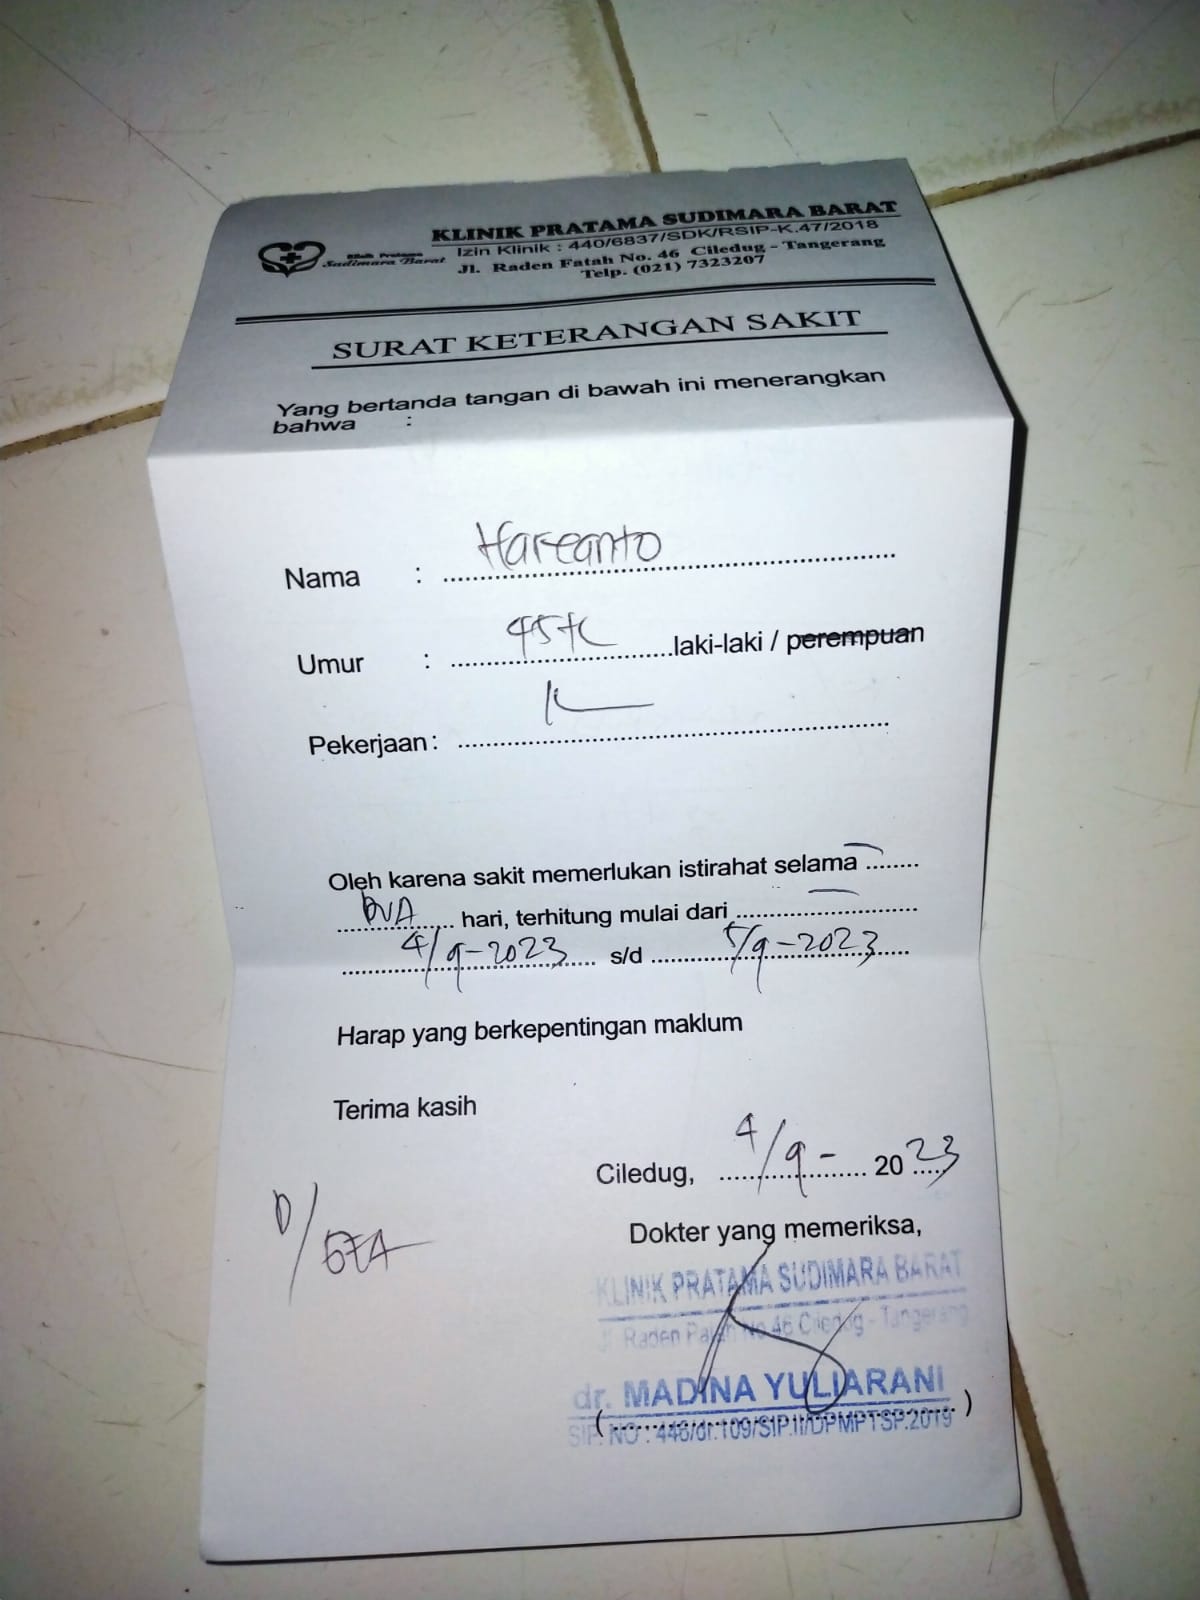 KLINIK PRATAMA SUDIMARA BARAT
Izin Klinik : 440/6837/SDK/RSIP-K.47/2018
Klinik Pratama
Sudimara Barat
Jl. Raden Fatah No. 46 Ciledug - Tangerang
Telp. (021) 7323207
SURAT KETERANGAN SAKIT
Yang bertanda tangan di bawah ini menerangkan
bahwa :
Nama : Hareanto
Umur : 45 laki-laki / perempuan
Pekerjaan :
Oleh karena sakit memerlukan istirahat selama
DUA hari, terhitung mulai dari
4/9-2023 s/d 5/9-2023
Harap yang berkepentingan maklum
Terima kasih
Ciledug, 4/9- 2023
Dokter yang memeriksa,
KLINIK PRATAMA SUDIMARA BARAT
Jl. Raden Patah No.46 Ciledug - Tangerang
dr. MADINA YULIARANI
SIP. NO : 446/dr.109/SIP.II/DPMPTSP.2019